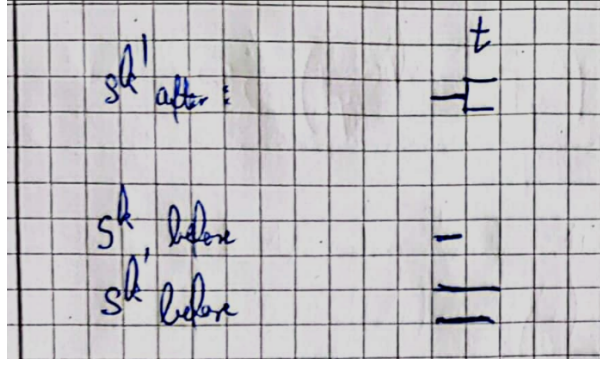 t
s^k' after :
s^k, before
s^k' before